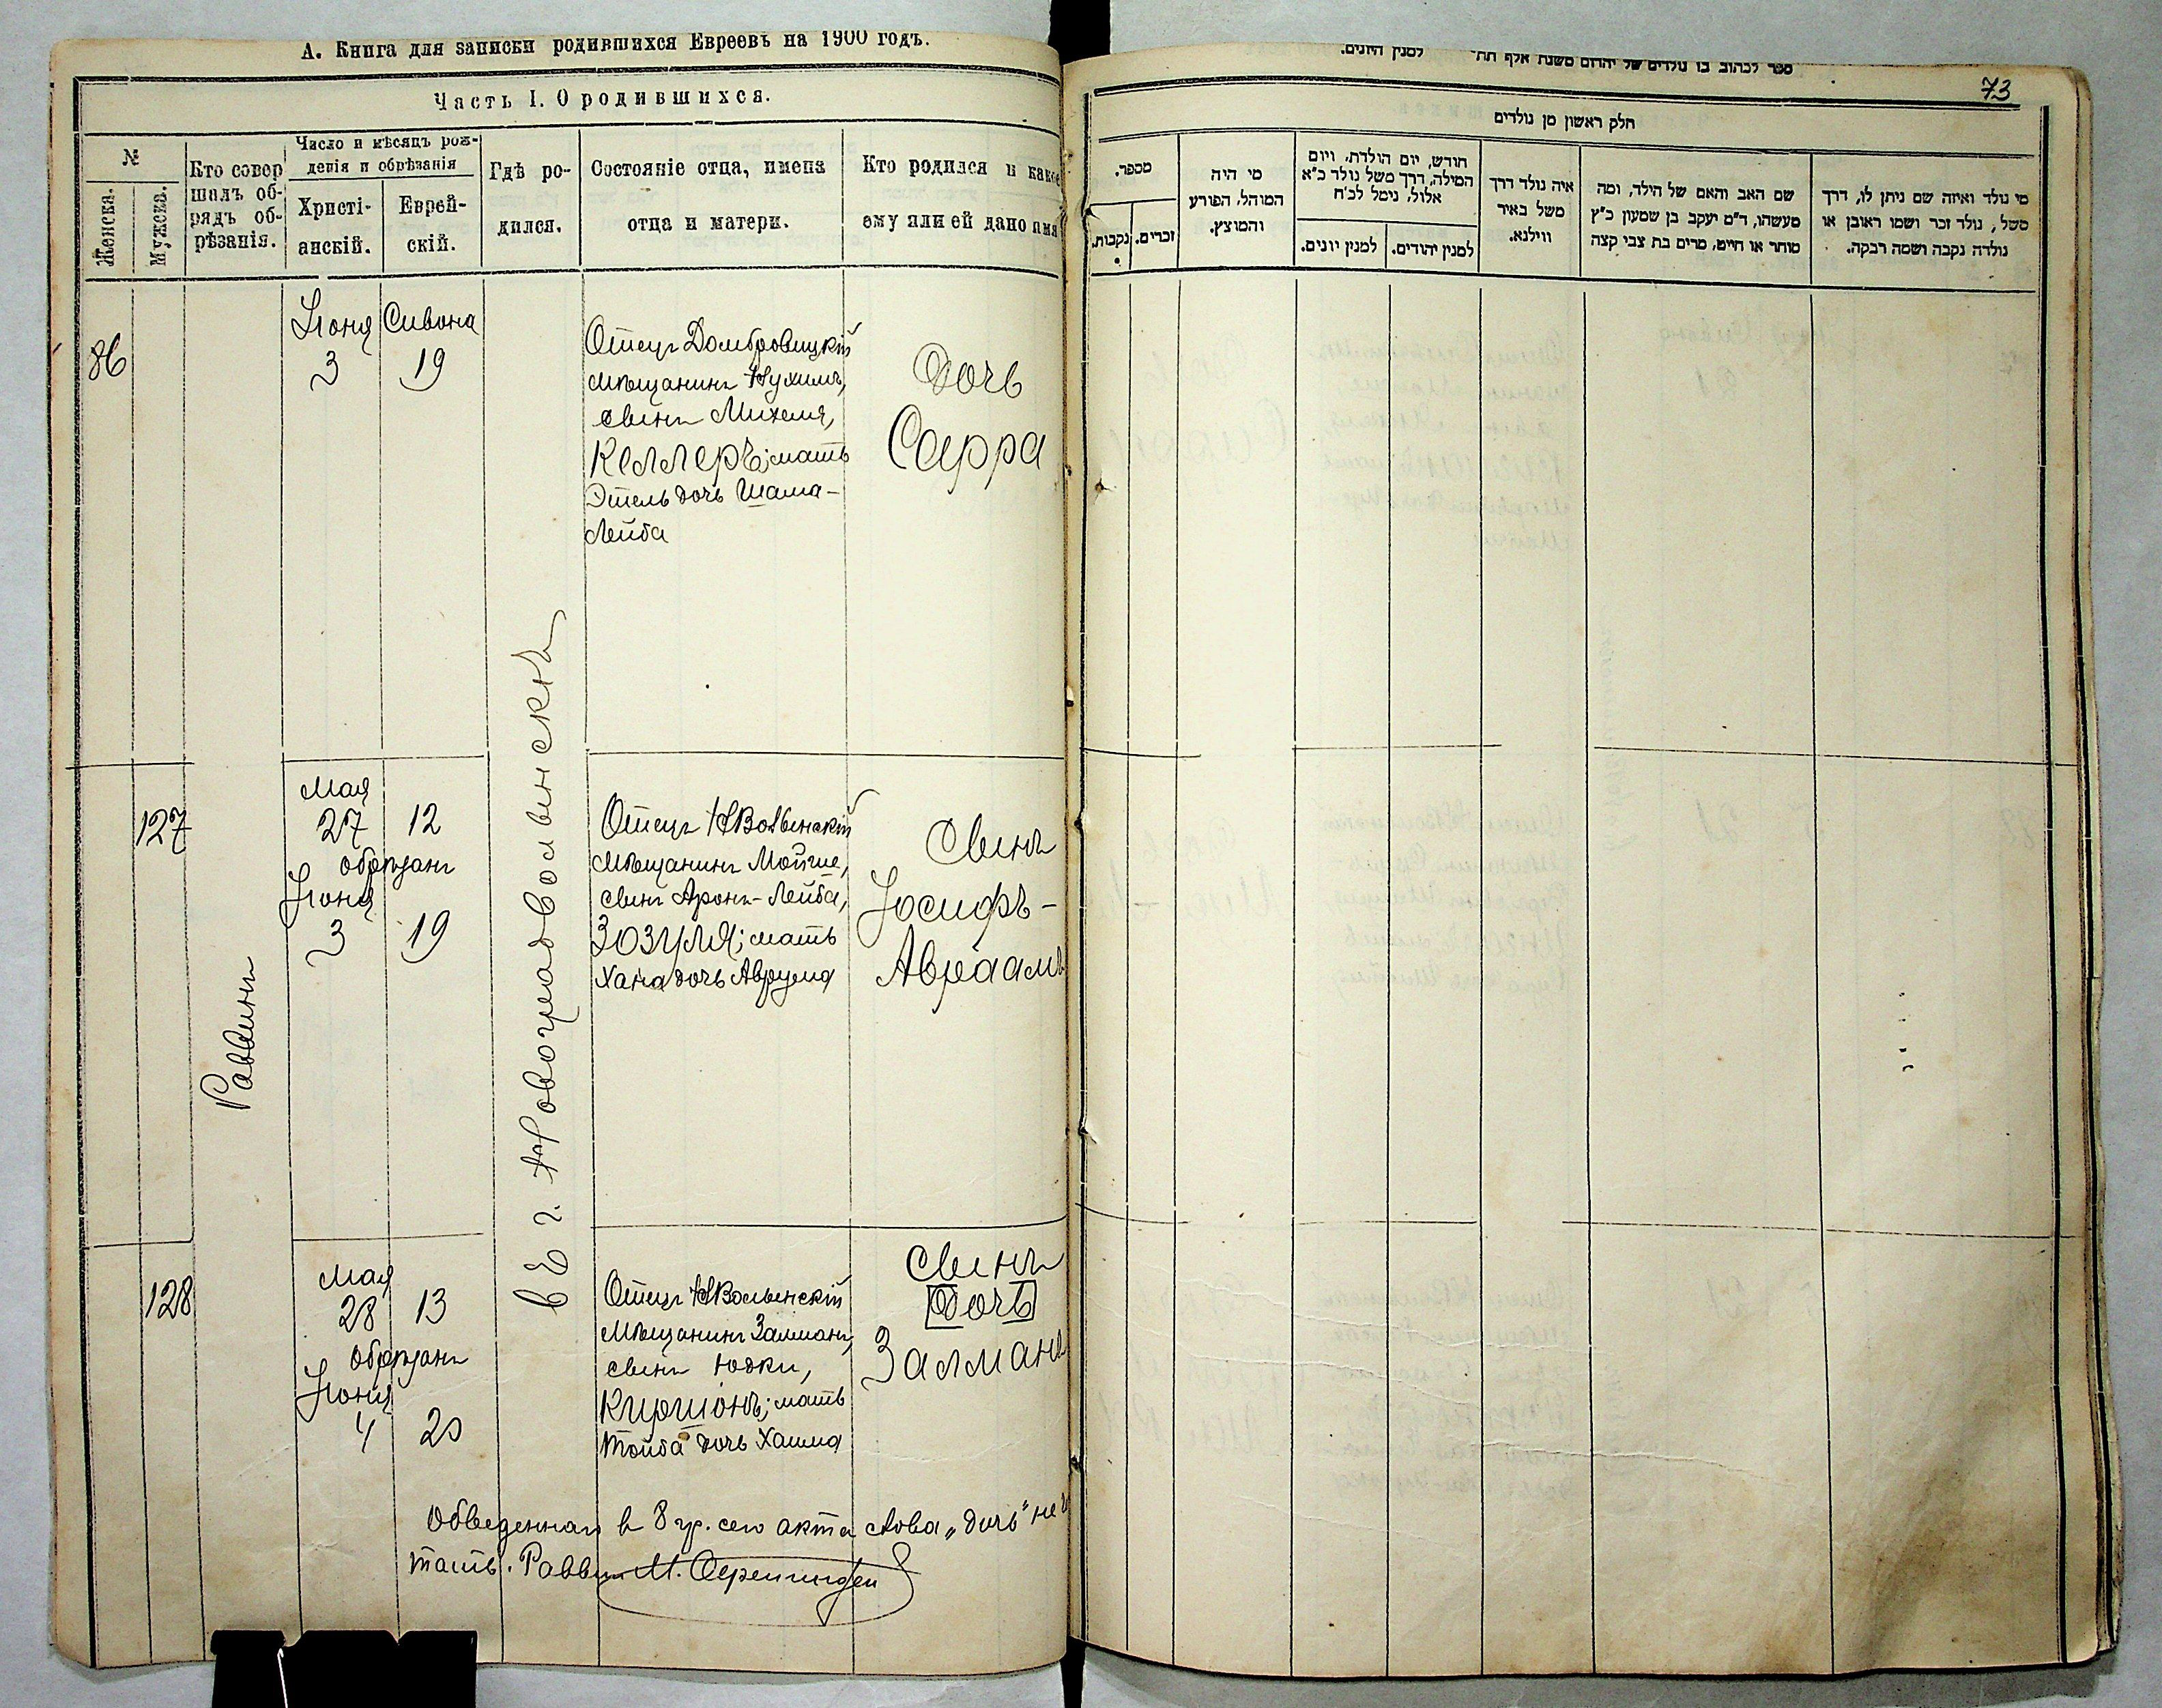 А. Книга для записки родившихся Евреевъ на 1900 годъ.
Часть I. О родившихся.
№
Женска.
Мужска.
Кто совер
шалъ об-
рядъ об-
рѣзанія.
Число и мѣсяцъ рож-
денія и обрѣзанія
Христі-
анскій.
Еврей-
скій.
Гдѣ ро-
дился.
Состояніе отца, имена
отца и матери.
Кто родился и какое
ему или ей дано имя
86
Іюня
3
Сивона
19
Отецъ Домбровицкій
мѣщанинъ Нухимъ,
сынъ Михеля,
Келлеръ; мать
Этель дочь Шама-
Лейба
Дочь
Сарра
Раввинъ
въ г. Новоградволынскѣ
127
Мая
27 12
обрѣзанъ
Іюня
3 19
Отецъ НВолынскій
мѣщанинъ Мойше,
сынъ Аронъ-Лейба,
Зозуля; мать
Хана дочь Аврума
Сынъ
Іосифъ-
Авраамъ
128
Мая
28 13
обрѣзанъ
Іюня
4 20
Отецъ НВолынскій
мѣщанинъ Залманъ,
сынъ Юдки,
Киршонъ; мать
Тойба дочь Хаима
Сынъ
Дочь
Залманъ
Обведенная в 8 гр. сего акта слова „дочь" не чи
тать. Раввин М.
ספר לכתוב בו נולדים של יהודים משנת אלף תת למנין היונים.
73
חלק ראשון מן נולדים
מספר.
נקבות.
זכרים.
מי היה
המוהל, הפורע
והמוצץ.
חודש, יום הולדת, ויום
המילה, דרך משל נולד כ"א
אלול, נימל לכ"ח
למנין יונים.
למנין יהודים.
איה נולד דרך
משל באיר
ווילנא.
שם האב והאם של הילד, ומה
מעשהו, ד"מ יעקב בן שמעון כ"ץ
סוחר או חייט, מרים בת צבי קצה
מי נולד ואיזה שם ניתן לו, דרך
משל, נולד זכר ושמו ראובן או
נולדה נקבה ושמה רבקה.